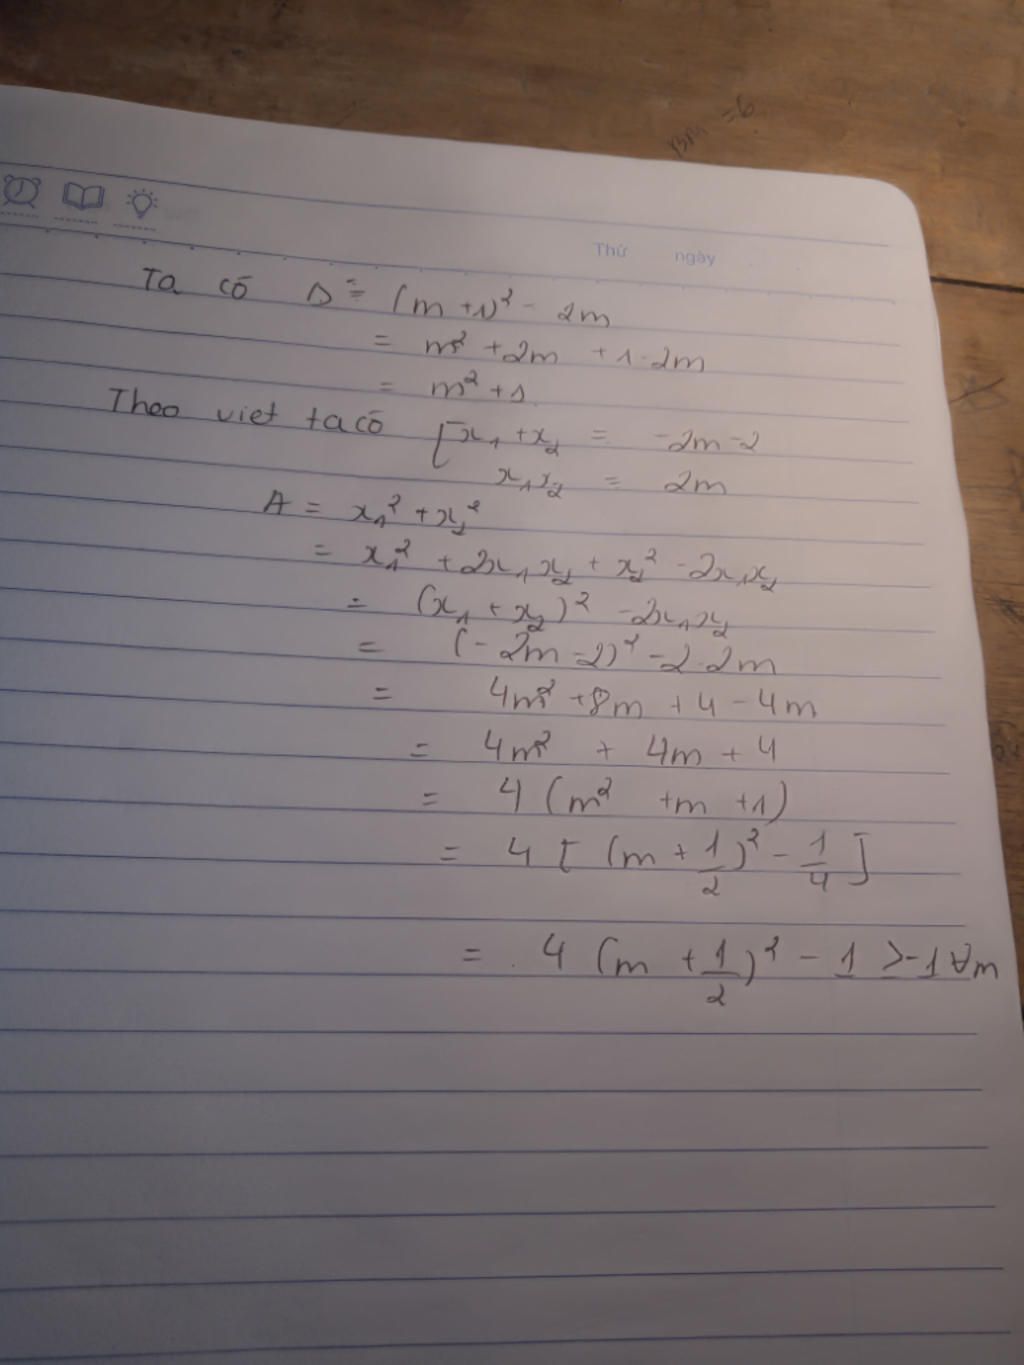 Thứ ngày
Ta có Δ' = (m + 1)² - 2m
= m² + 2m + 1 - 2m
= m² + 1
Theo viet ta có [ x₁ + x₂ = -2m - 2
x₁x₂ = 2m
A = x₁² + x₂²
= x₁² + 2x₁x₂ + x₂² - 2x₁x₂
= (x₁ + x₂)² - 2x₁x₂
= (-2m - 2)² - 2.2m
= 4m² + 8m + 4 - 4m
= 4m² + 4m + 4
= 4 (m² + m + 1)
= 4 [ (m + 1/2)² - 1/4 ]
= 4 (m + 1/2)² - 1 ≥ -1 ∀m